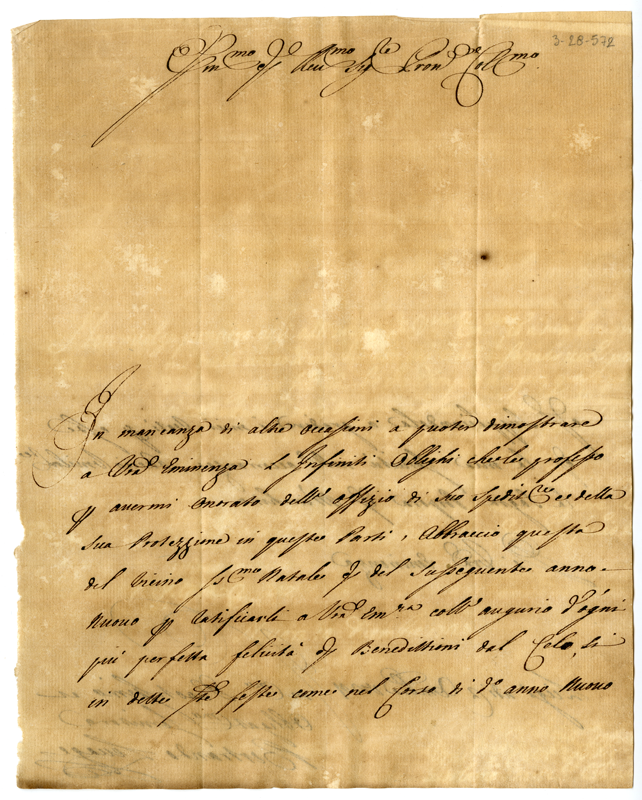 3-28-572
Em.mo e Rev.mo Sig.re Pron. Col.mo
In mancanza di altre occassioni a poter dimostrare
a Vra Eminenza l'Infiniti Oblighi che le professo
p avermi onorato dell' offizio di suo Spedit.re e della
sua Protezzione in queste Parti, Abbraccio questa
del vicino SS.mo Natale e del Susseguente anno
nuovo p ratificarli a Vra Em.za coll' augurio d'ogni
più perfetta felicità e Benedittioni dal Celo, si
in dette Ste feste come nel Corso di do anno Nuovo